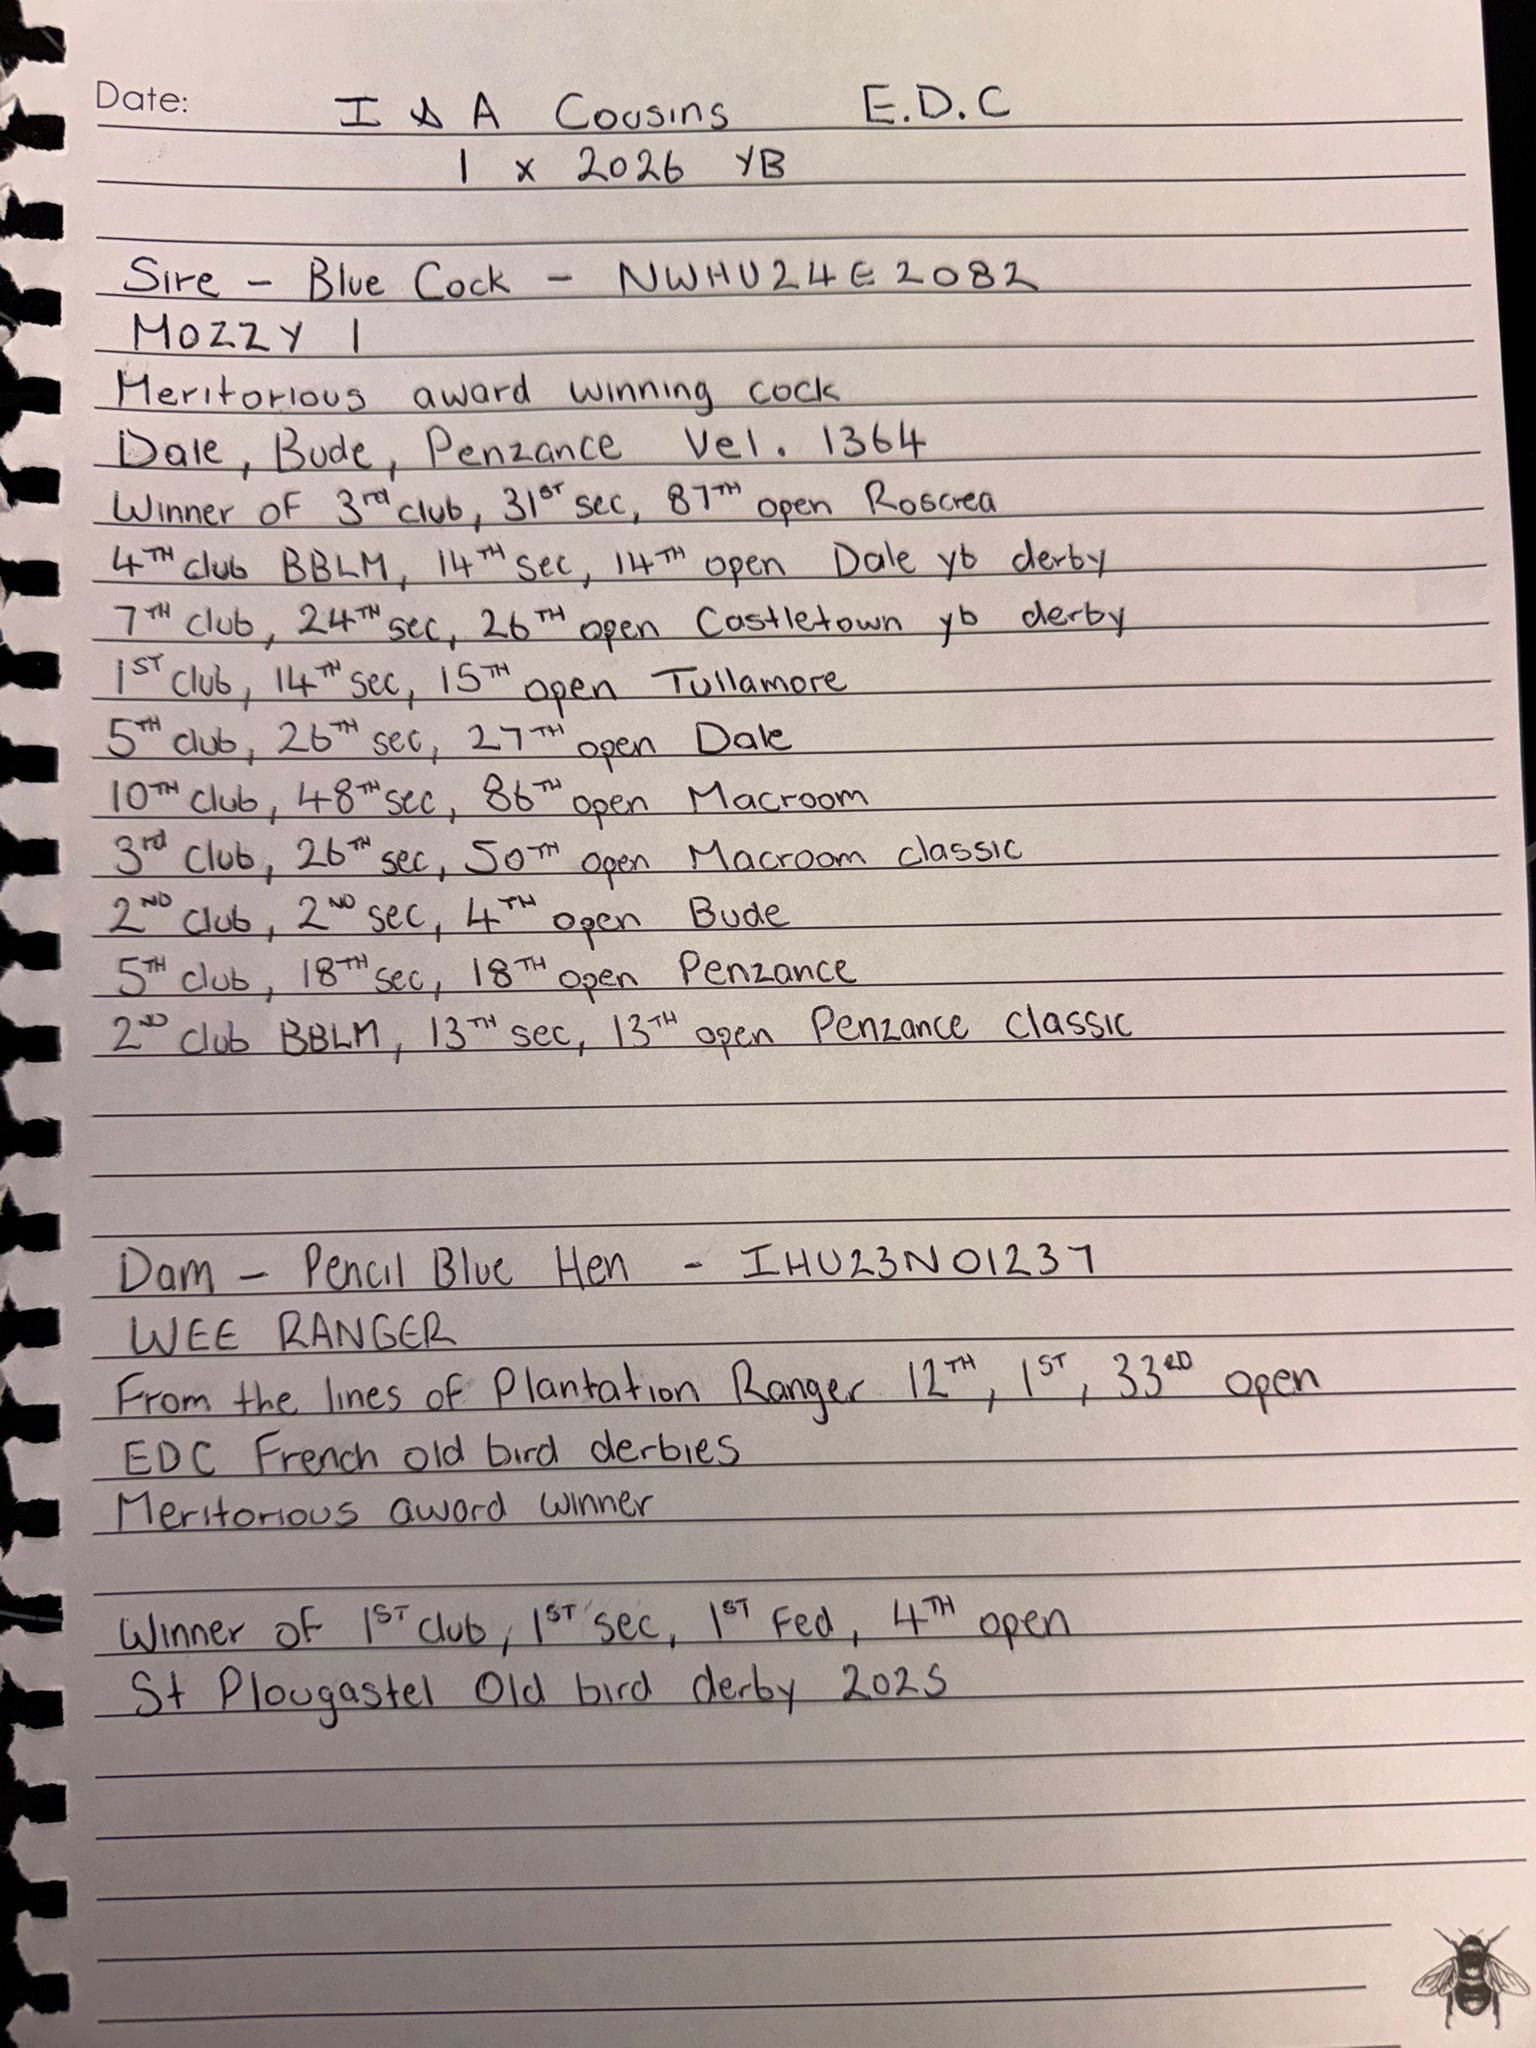 Date: I & A Cousins E.D.C
1 x 2026 YB
Sire - Blue Cock - NWHU24E2082
MOZZY 1
Meritorious award winning cock
Dale, Bude, Penzance Vel. 1364
Winner of 3rd club, 31ST sec, 87TH open Roscrea
4TH club BBLM, 14TH sec, 14TH open Dale yb derby
7TH club, 24TH sec, 26TH open Castletown yb derby
1ST club, 14TH sec, 15TH open Tullamore
5TH club, 26TH sec, 27TH open Dale
10TH club, 48TH sec, 86TH open Macroom
3rd club, 26TH sec, 50TH open Macroom classic
2ND club, 2ND sec, 4TH open Bude
5TH club, 18TH sec, 18TH open Penzance
2ND club BBLM, 13TH sec, 13TH open Penzance classic
Dam - Pencil Blue Hen - IHU23N01237
WEE RANGER
From the lines of Plantation Ranger 12TH, 1ST, 33RD open
EDC French old bird derbies
Meritorious award winner
Winner of 1ST club, 1ST sec, 1ST Fed, 4TH open
St Plougastel Old bird derby 2025